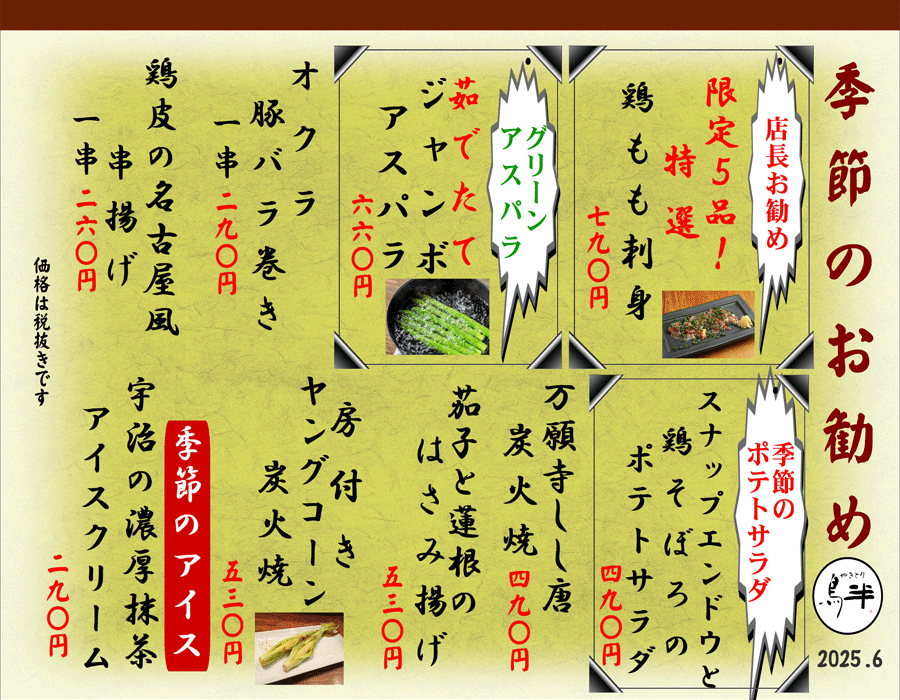 季節のお勧め
やきとり
鳥半
2025.6
店長お勧め
限定5品!
特選
鶏もも刺身
七九〇円
グリーン
アスパラ
茹でたて
ジャンボ
アスパラ
六六〇円
オクラ
豚バラ巻き
一串二九〇円
鶏皮の名古屋風
串揚げ
一串二六〇円
季節の
ポテトサラダ
スナップエンドウと
鶏そぼろの
ポテトサラダ
四九〇円
万願寺しし唐
炭火焼
四九〇円
茄子と蓮根の
はさみ揚げ
五三〇円
房付き
ヤングコーン
炭火焼
五三〇円
季節のアイス
宇治の濃厚抹茶
アイスクリーム
二九〇円
価格は税抜きです